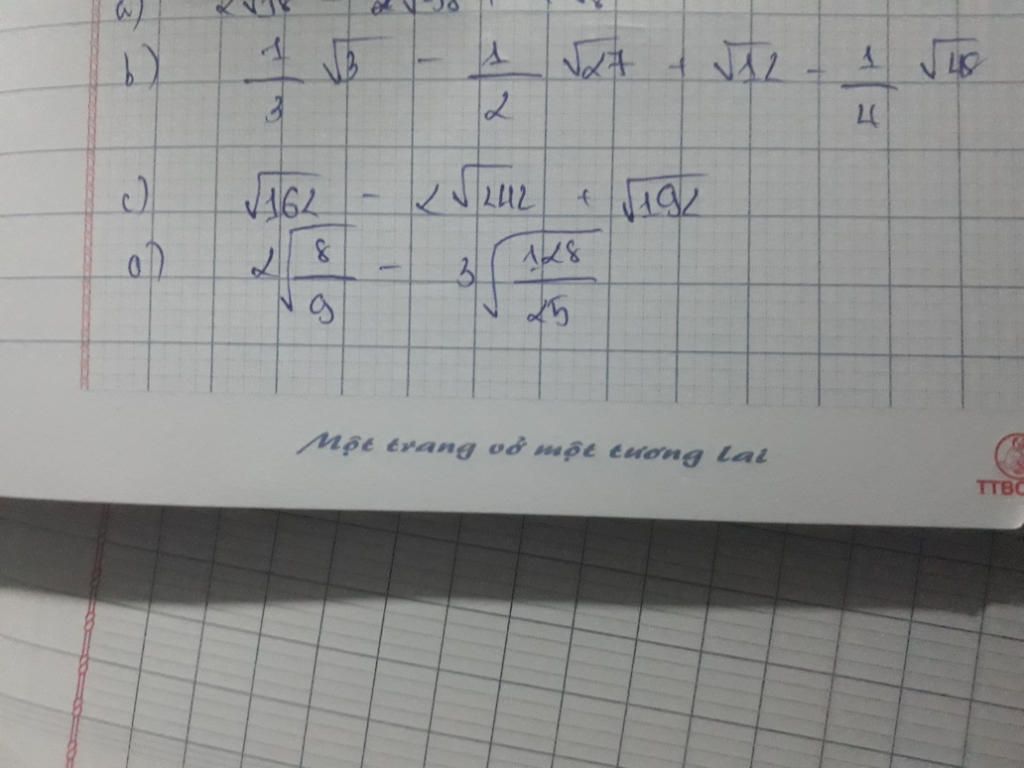 a)
b) 1/3 √3 - 1/2 √27 + √12 - 1/4 √48
c) √162 - 2√242 + √192
d) 2√(8/9) - 3√(128/25)
Một trang vở một tương lai